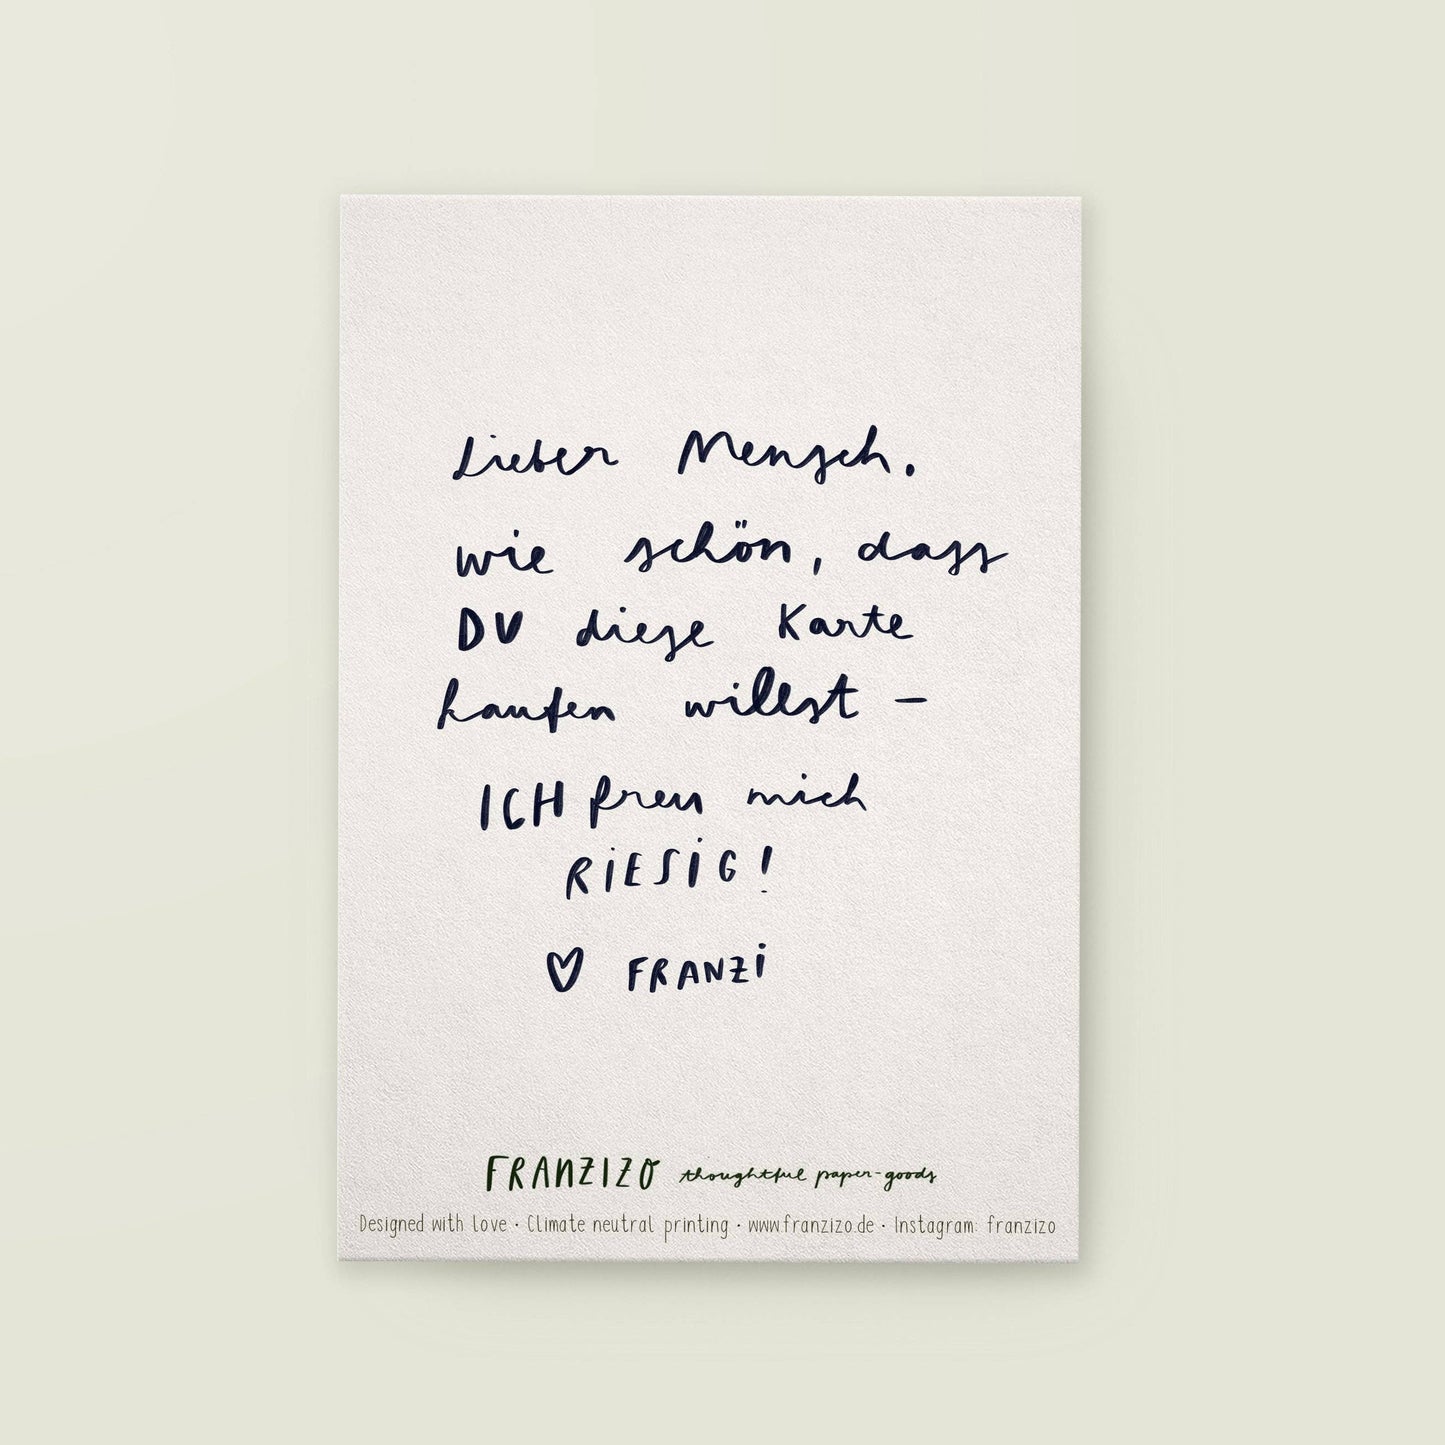 Lieber Mensch.
wie schön, dass
DU diese Karte
kaufen willst –
ICH freu mich
RiESiG!
♡ FRANZi
FRANZIZO thoughtful paper-goods
Designed with love · Climate neutral printing · www.franzizo.de · Instagram: franzizo